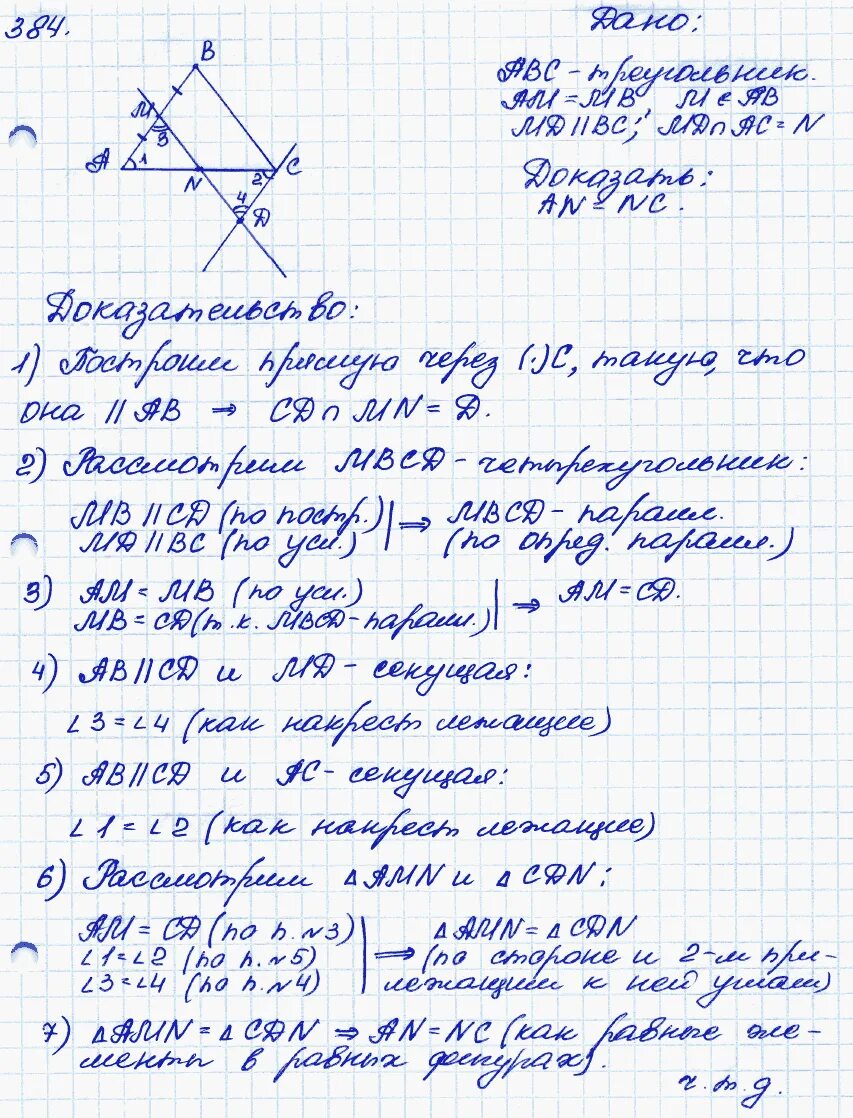 384.
Дано:
ABC - треугольник.
AM = MB, M ∈ AB
MD || BC; MD ∩ AC = N
Доказать:
AN = NC.
B
M
3
A
1
N
2
C
4
D
Доказательство:
1) Построим прямую через (·)C, такую, что
она || AB ⇒ CD ∩ MN = D.
2) Рассмотрим MBCD - четырехугольник:
MB || CD (по постр.) | ⇒ MBCD - паралл.
MD || BC (по усл.) (по опред. паралл.)
3) AM = MB (по усл.) | ⇒ AM = CD.
MB = CD (т.к. MBCD - паралл.)
4) AB || CD и MD - секущая:
∠3 = ∠4 (как накрест лежащие)
5) AB || CD и AC - секущая:
∠1 = ∠2 (как накрест лежащие)
6) Рассмотрим △AMN и △CDN:
AM = CD (по п. №3) △AMN = △CDN
∠1 = ∠2 (по п. №5) | ⇒ (по стороне и 2-м при-
∠3 = ∠4 (по п. №4) лежащим к ней углам)
7) △AMN = △CDN ⇒ AN = NC (как равные эле-
менты в равных фигурах).
ч.т.д.